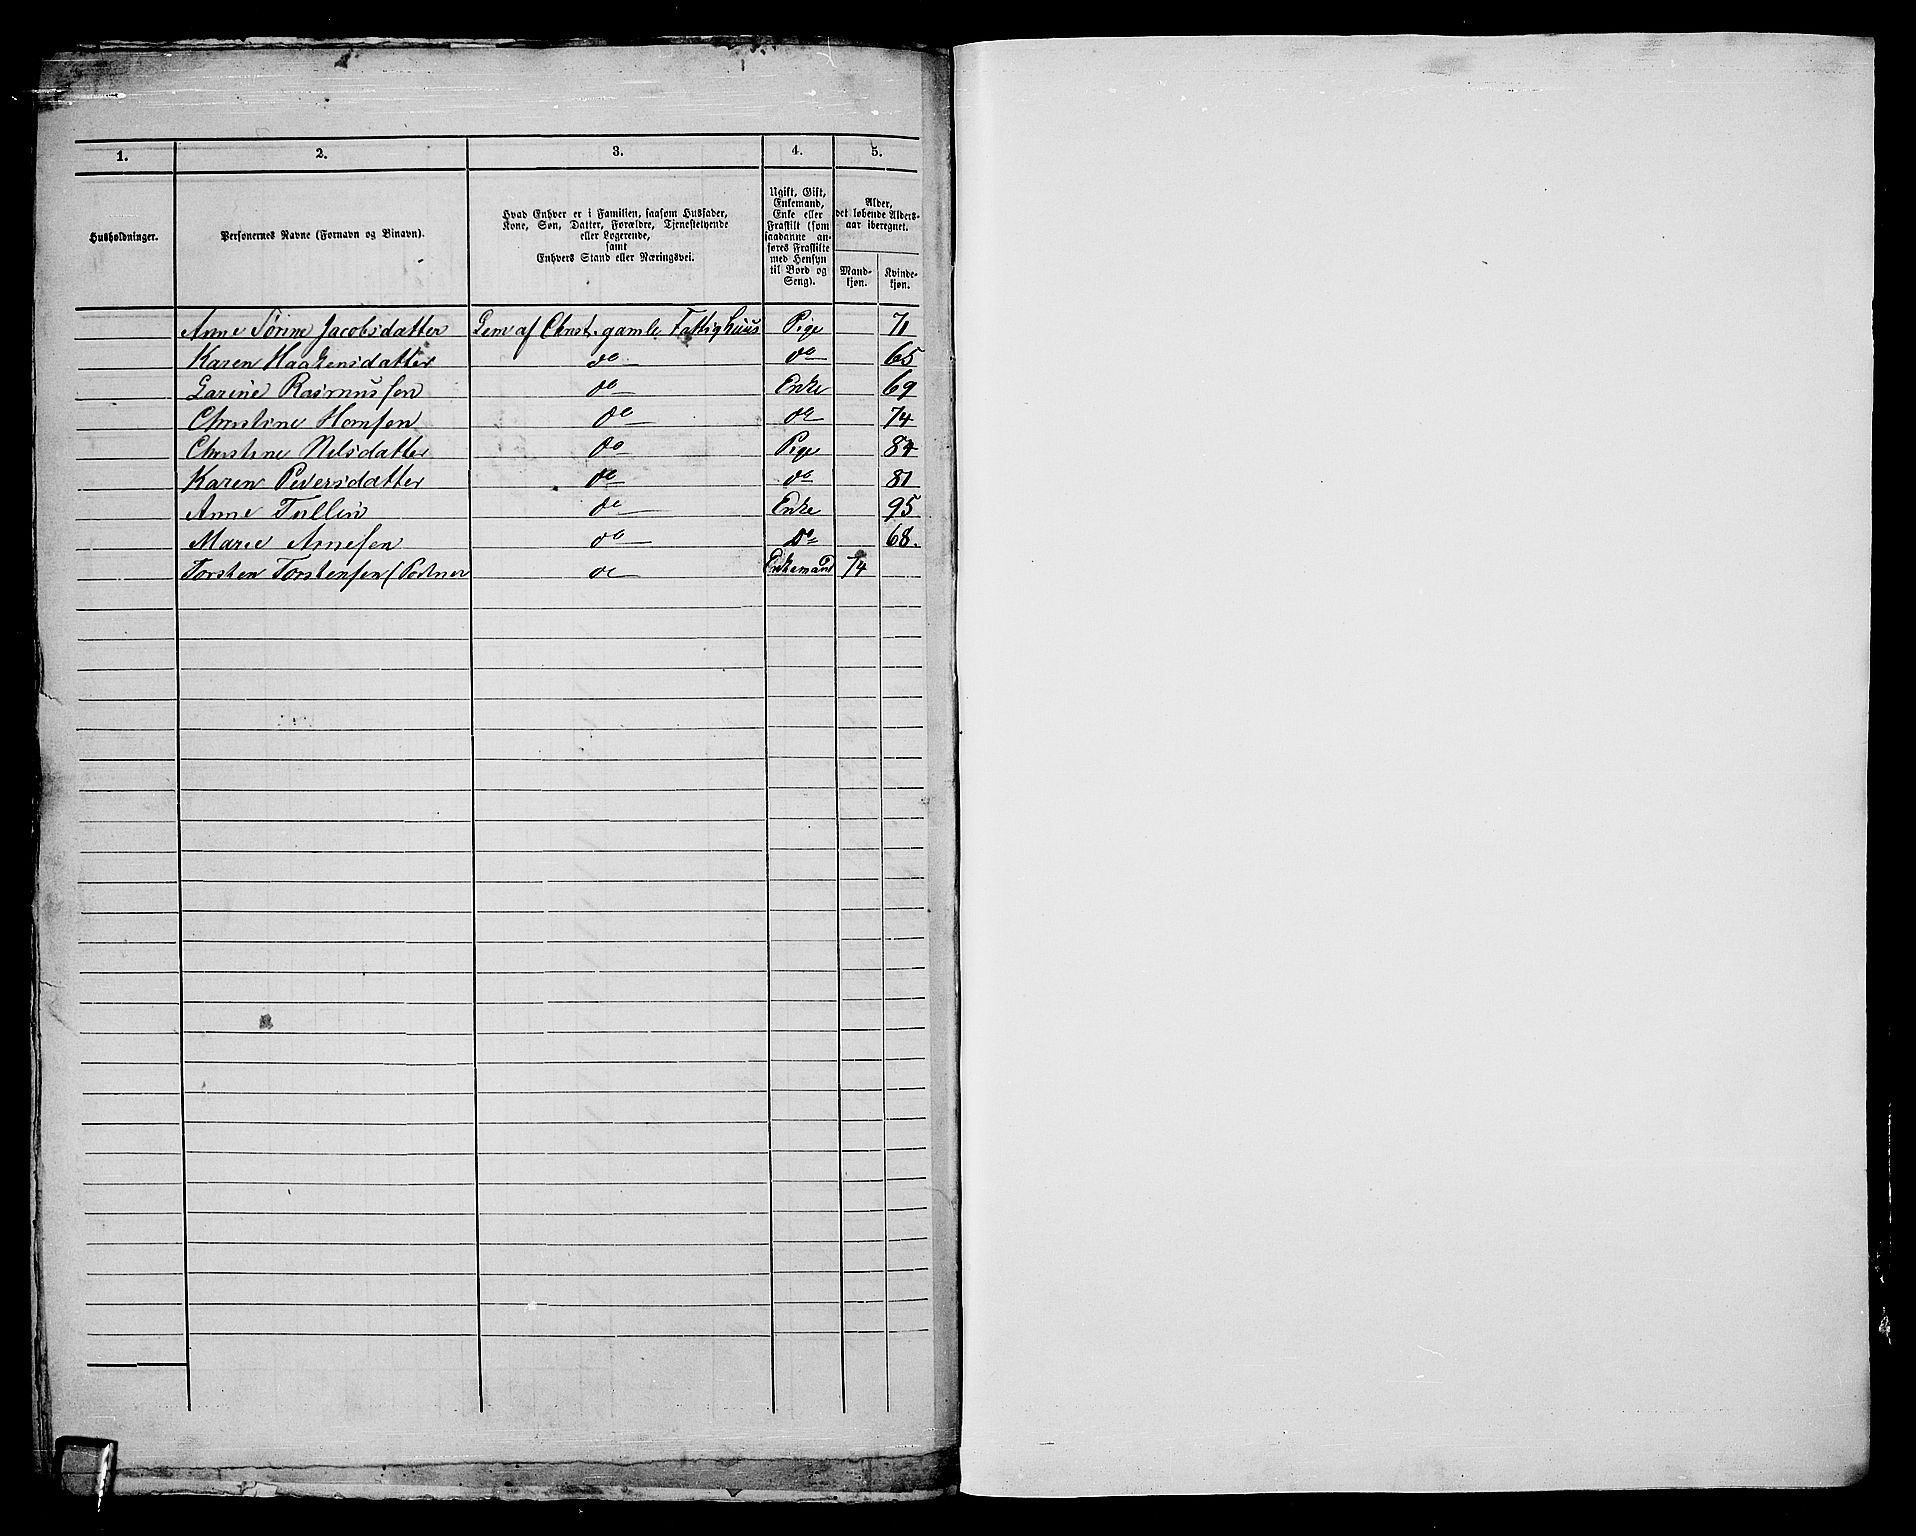 1. 2. 3. 4. 5.
Husholdninger.
Personernes Navne (Fornavn og Binavn).
Hvad Enhver er i Familien, saasom Husfader,
Kone, Søn, Datter, Forældre, Tjenestetyende
eller Logerende,
samt
Enhvers Stand eller Næringsvei.
Ugift, Gift,
Enkemand,
Enke eller
Fraskilt (som
saadanne an-
føres Fraskilte
med Hensyn
til Bord og
Seng).
Alder,
det løbende Alders-
aar iberegnet.
Mand-
kjøn.
Kvinde-
kjøn.
Anne Sørine Jacobsdatter Lem af Christ. gamle Fattighuus Pige 71
Karen Haakensdatter do do 65
Larine Rasmussen do Enke 69
Christine Hansen do do 74
Christine Nilsdatter do Pige 84
Karen Peversdatter do do 81
Anne Tullin do Enke 95
Marie Arnesen do Do 68.
Torsten Torstensen (Portner do Enkemand 74